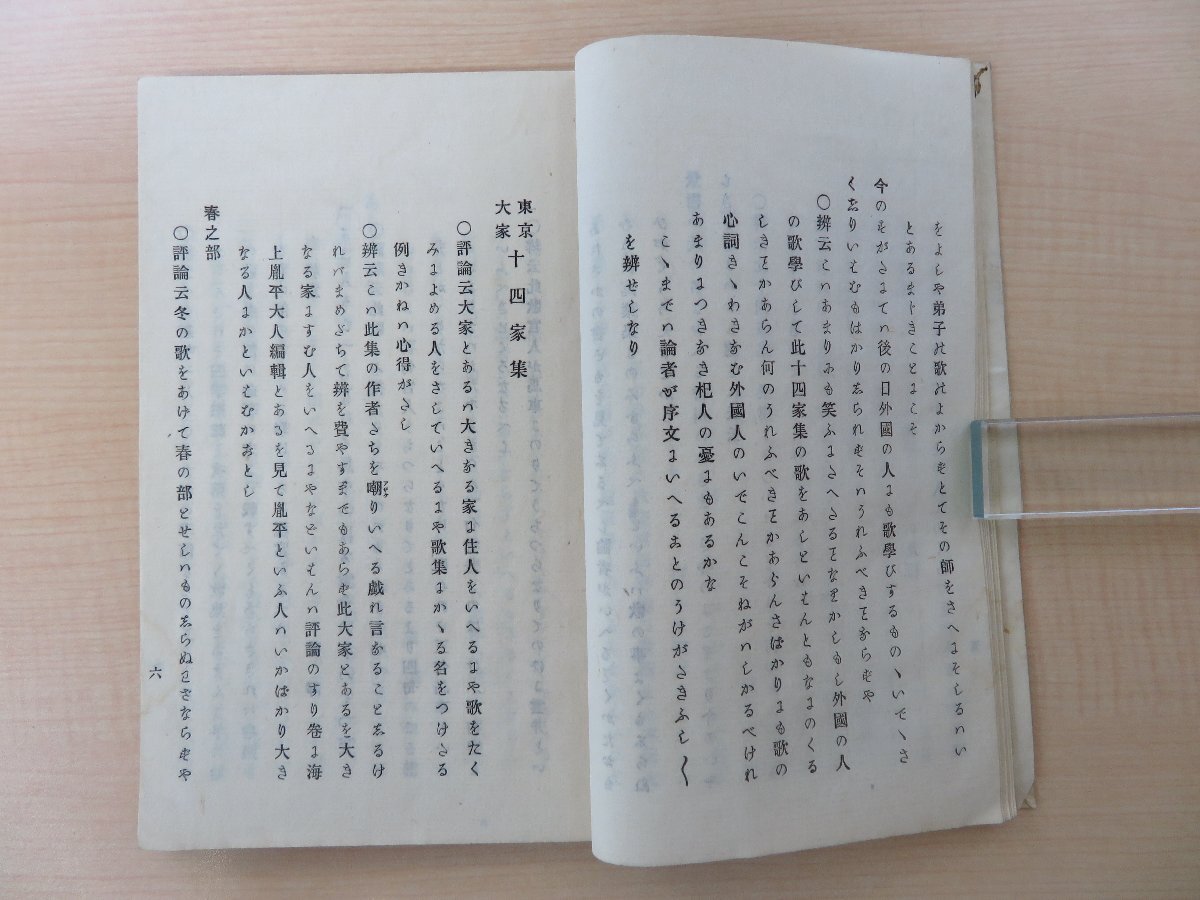 をよしや弟子の歌のよからずとてその師をさへにそしるハい
とあるまじきことにこそ
今のすがたにてハ後の日外國の人にも歌學びするものゝいでくさ
くありいはむもはかりしられずそハうれふべきことならずや
〇辨云こハあまりおも笑ふにたへたることなりかしもし外國の人
の歌學びして此十四家集の歌をあしといはんともなにのくる
しきことかあらん何のうれふべきことかあらんさばかりにも歌の
心詞きゝわきなむ外國人のいでこんこそねがハしかるべけれ
あまりにつきなき杞人の憂にもあるかな
こゝまでハ論者が序文にいへることのうけがたきふし〱
を辨せしなり
東京大家十四家集
〇評論云大家とあるハ大きなる家に住人をいへるにや歌をたく
みによめる人をさしていへるにや歌集にかゝる名をつけたる
例きかねハ心得がたし
〇辨云こハ此集の作者たちを嘲りいへる戯れ言なることしるけ
れバまめだちて辨を費やすまでもあらず此大家とあるを大き
なる家にすむ人をいへるにやなどいはんハ評論のすり卷に海
上胤平大人編輯とあるを見て胤平といふ人ハいかばかり大き
なる人にかといはむかおとし
春之部
〇評論云冬の歌をあけて春の部とせしハものしらぬわざならずや
六